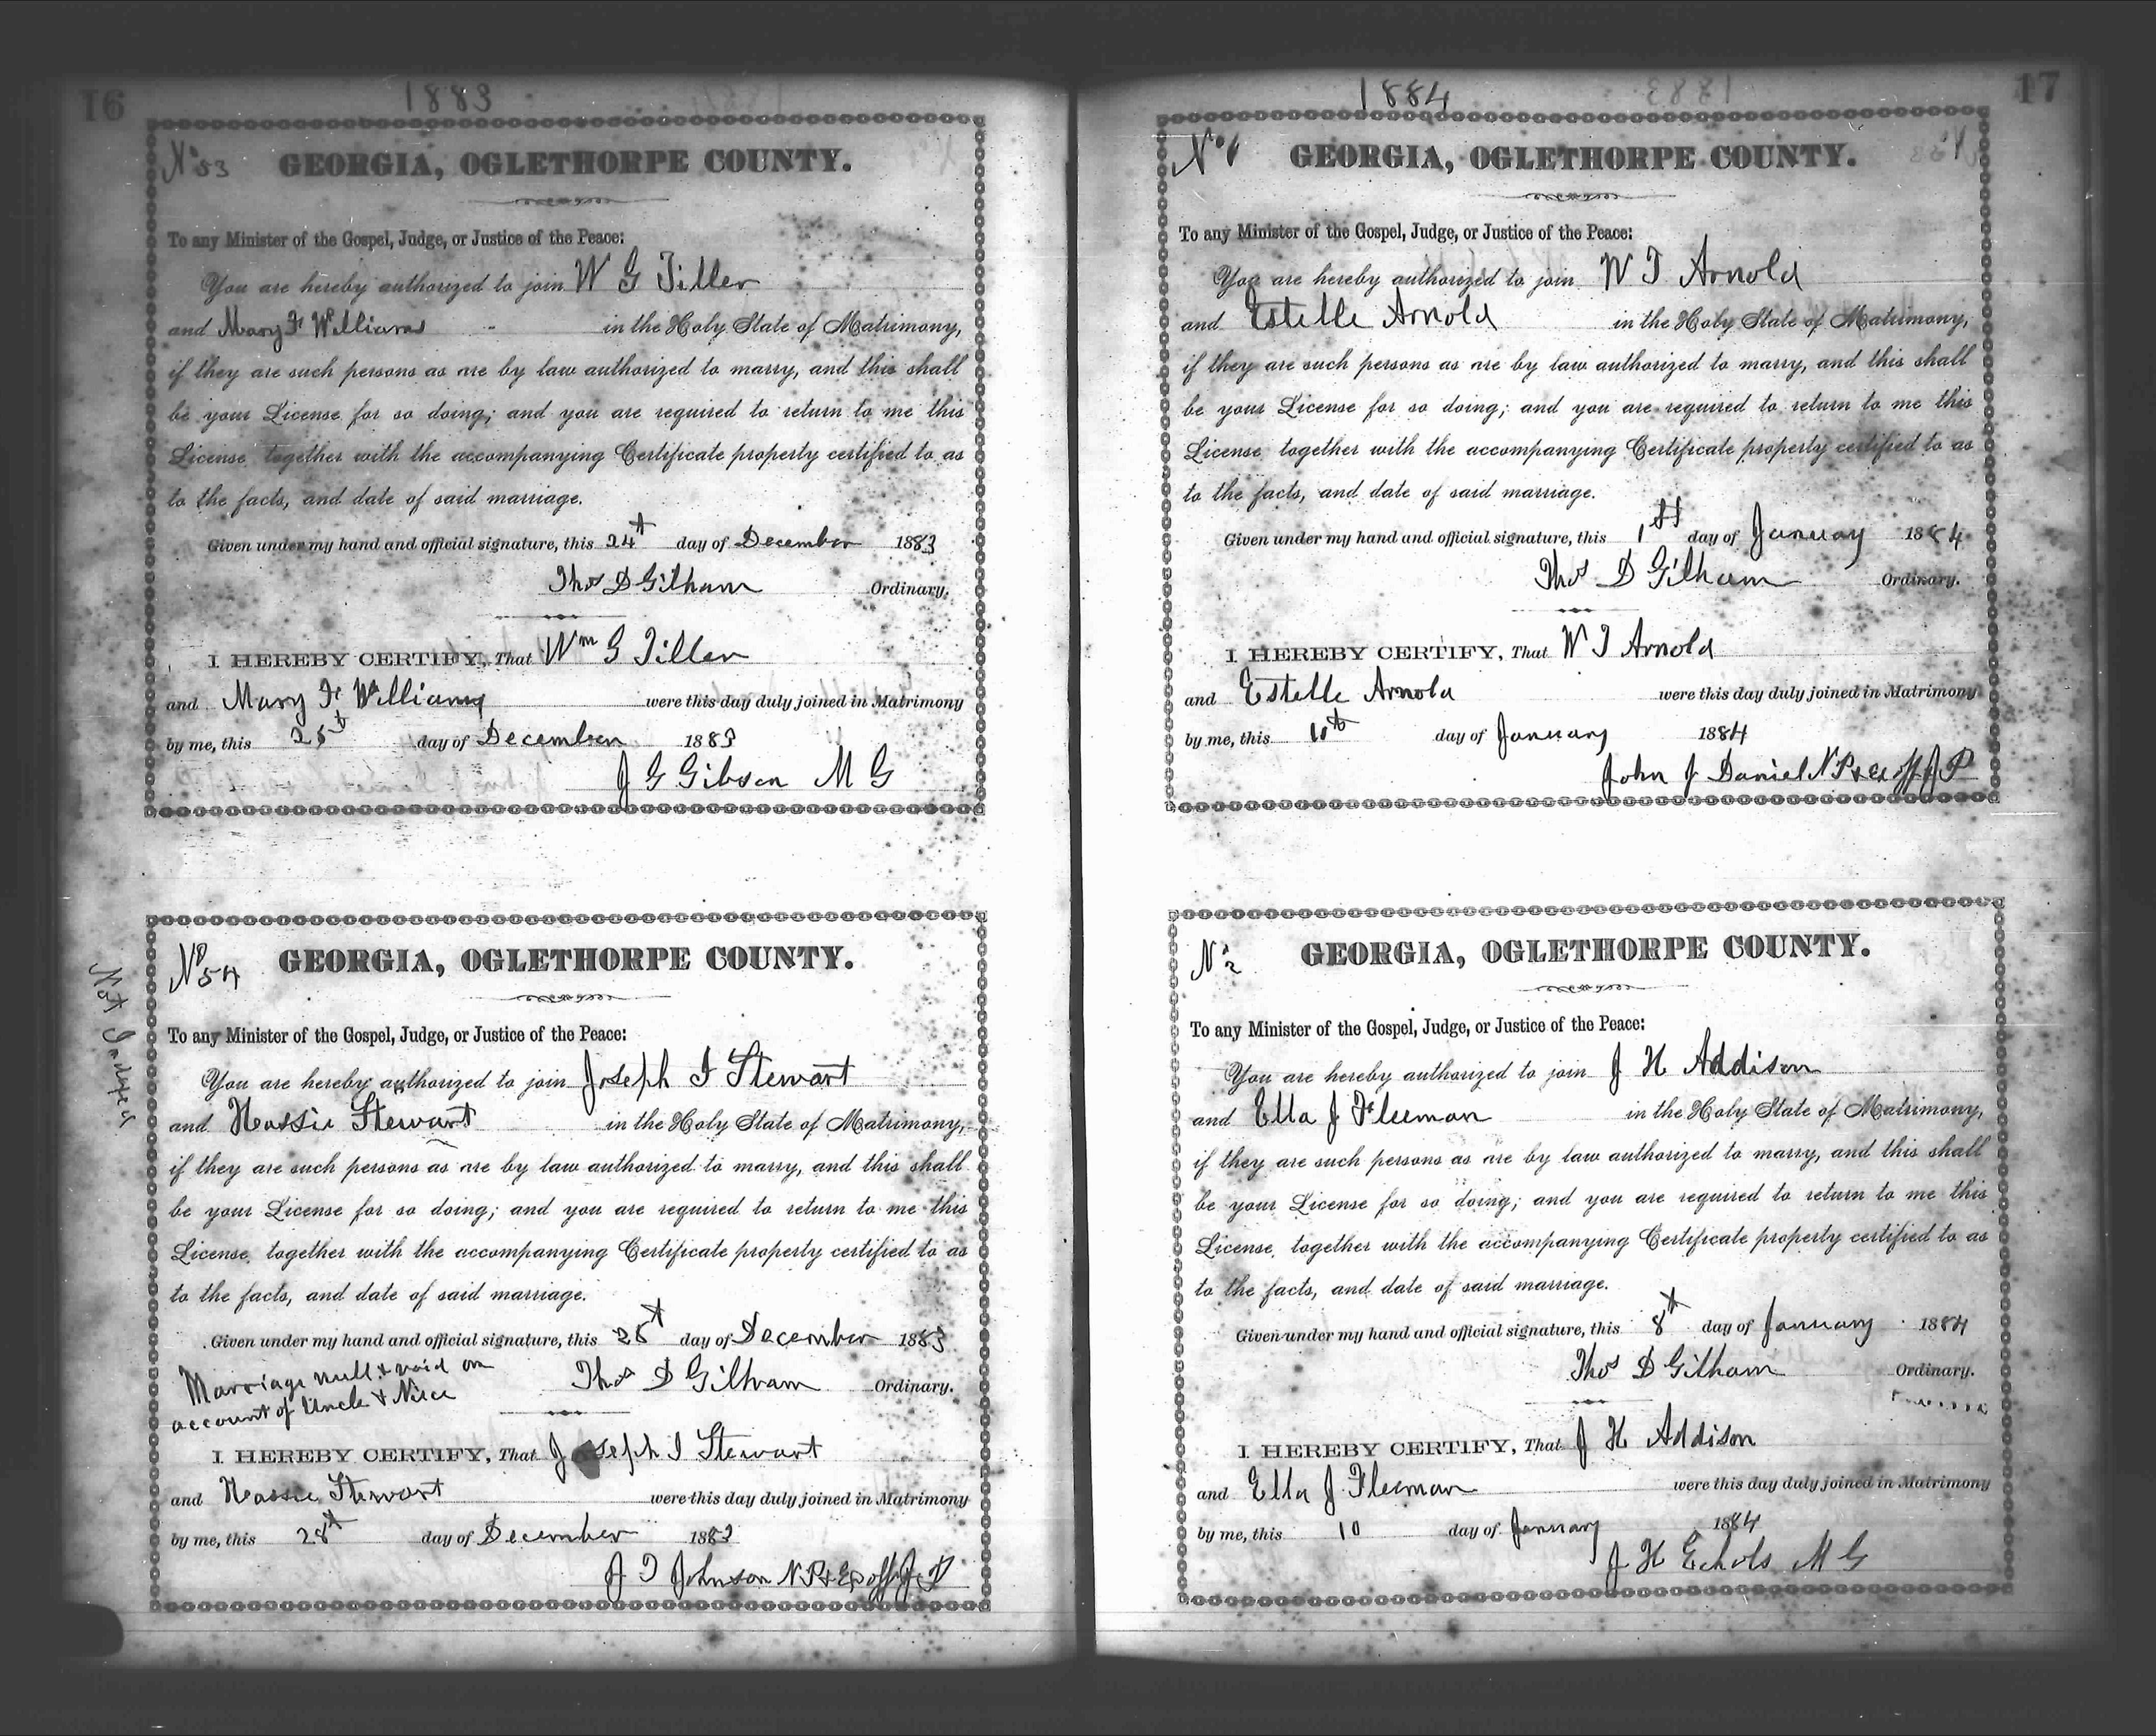 16
1883
No 53
GEORGIA, OGLETHORPE COUNTY.
To any Minister of the Gospel, Judge, or Justice of the Peace:
You are hereby authorized to join W G Tiller
and Mary F. Williams in the Holy State of Matrimony,
if they are such persons as are by law authorized to marry, and this shall
be your License for so doing; and you are required to return to me this
License, together with the accompanying Certificate property certified to as
to the facts, and date of said marriage.
Given under my hand and official signature, this 24t day of December 1883
Thos D Gilham Ordinary.
I HEREBY CERTIFY, That Wm G Tiller
and Mary F. Williams were this day duly joined in Matrimony
by me, this 25t day of December 1883
J G Gibson M G
No 54
Not Indexed
GEORGIA, OGLETHORPE COUNTY.
To any Minister of the Gospel, Judge, or Justice of the Peace:
You are hereby authorized to join Joseph I Stewart
and Hassie Stewart in the Holy State of Matrimony,
if they are such persons as are by law authorized to marry, and this shall
be your License for so doing; and you are required to return to me this
License, together with the accompanying Certificate property certified to as
to the facts, and date of said marriage.
Given under my hand and official signature, this day of December 1883
Marriage null & void on
account of Uncle & Niece
Thos D Gilham Ordinary.
I HEREBY CERTIFY, That Joseph I Stewart
and Hassie Stewart were this day duly joined in Matrimony
by me, this 28t day of December 1883
J T Johnson N P & Ex off J P
17
1884
No 1
GEORGIA, OGLETHORPE COUNTY.
To any Minister of the Gospel, Judge, or Justice of the Peace:
You are hereby authorized to join W T Arnold
and Estelle Arnold in the Holy State of Matrimony,
if they are such persons as are by law authorized to marry, and this shall
be your License for so doing; and you are required to return to me this
License, together with the accompanying Certificate property certified to as
to the facts, and date of said marriage.
Given under my hand and official signature, this 1st day of January 1884
Thos D Gilham Ordinary.
I HEREBY CERTIFY, That W T Arnold
and Estelle Arnold were this day duly joined in Matrimony
by me, this 10th day of January 1884
John J Daniel N P & Ex off J P
No 2
GEORGIA, OGLETHORPE COUNTY.
To any Minister of the Gospel, Judge, or Justice of the Peace:
You are hereby authorized to join J H Addison
and Ella J Fleeman in the Holy State of Matrimony,
if they are such persons as are by law authorized to marry, and this shall
be your License for so doing; and you are required to return to me this
License, together with the accompanying Certificate property certified to as
to the facts, and date of said marriage.
Given under my hand and official signature, this 8t day of January 1884
Thos D Gilham Ordinary.
I HEREBY CERTIFY, That J H Addison
and Ella J Fleeman were this day duly joined in Matrimony
by me, this 10 day of January 1884
J H Echols M G